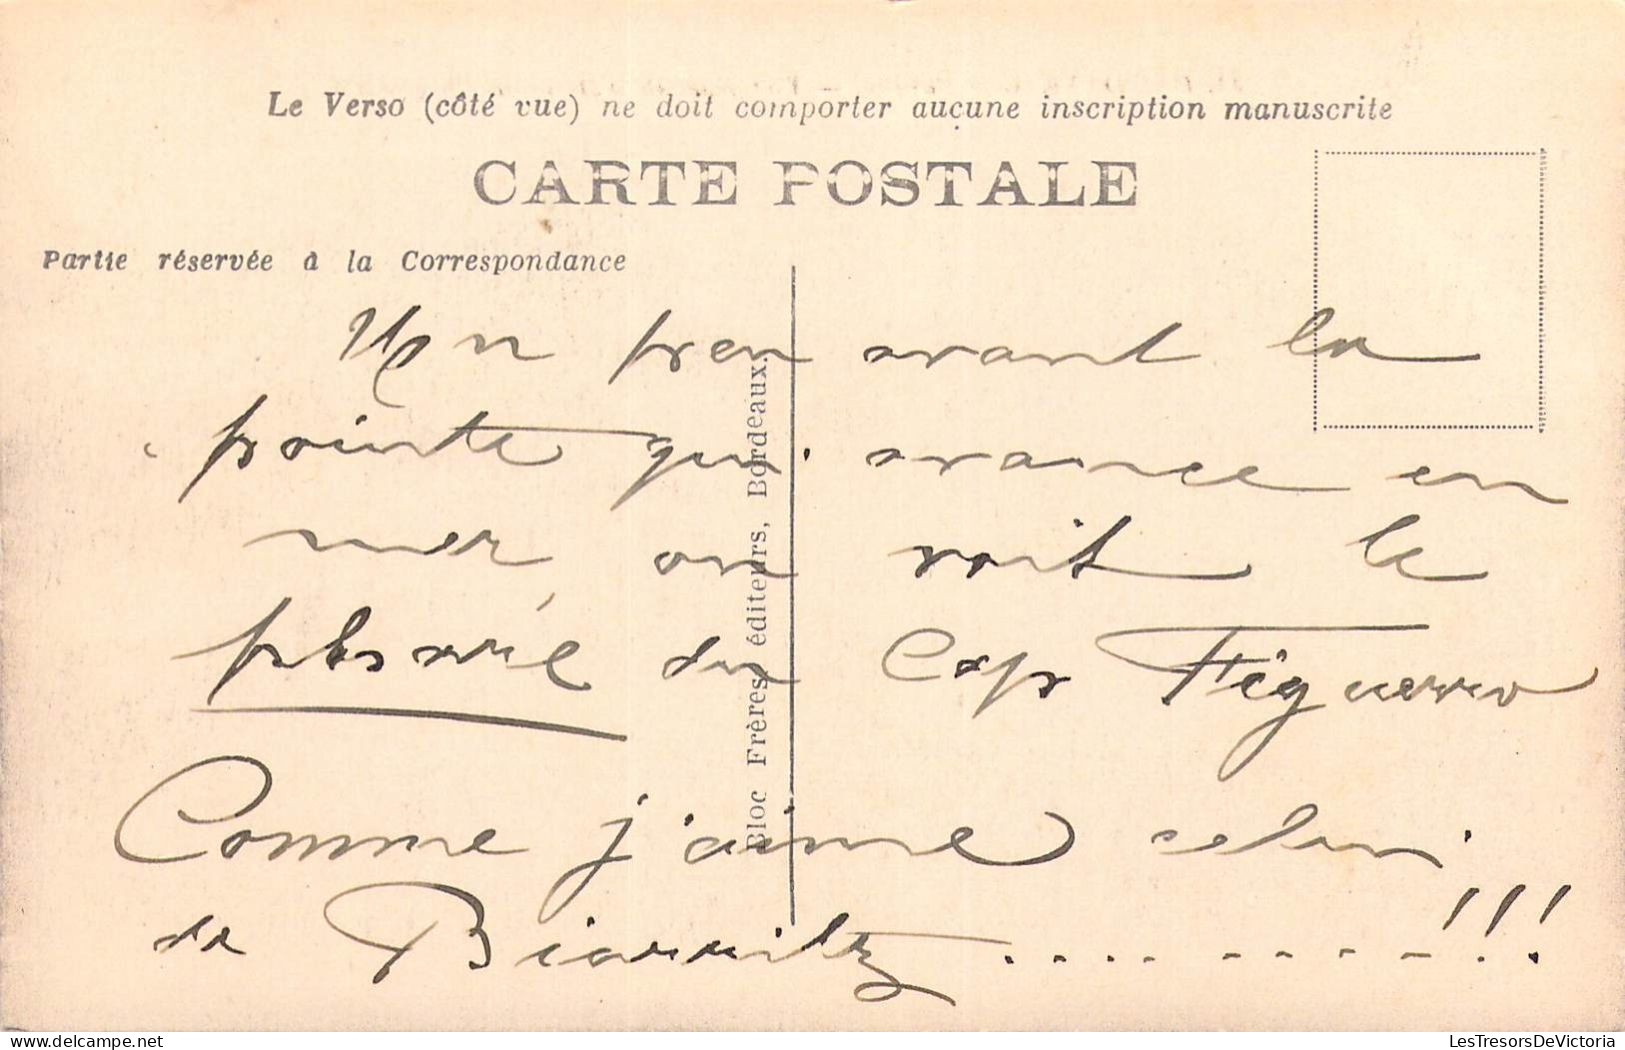 Le Verso (côté vue) ne doit comporter aucune inscription manuscrite
CARTE POSTALE
Partie réservée à la Correspondance
Un peu avant la
pointe qui avance en
mer, on voit le
phare du Cap Figuerro
Comme j'aime celui
de Biarritz ......... !!!
Bloc Frères, éditeurs, Bordeaux.
delcampe.net
LesTresorsDeVictoria